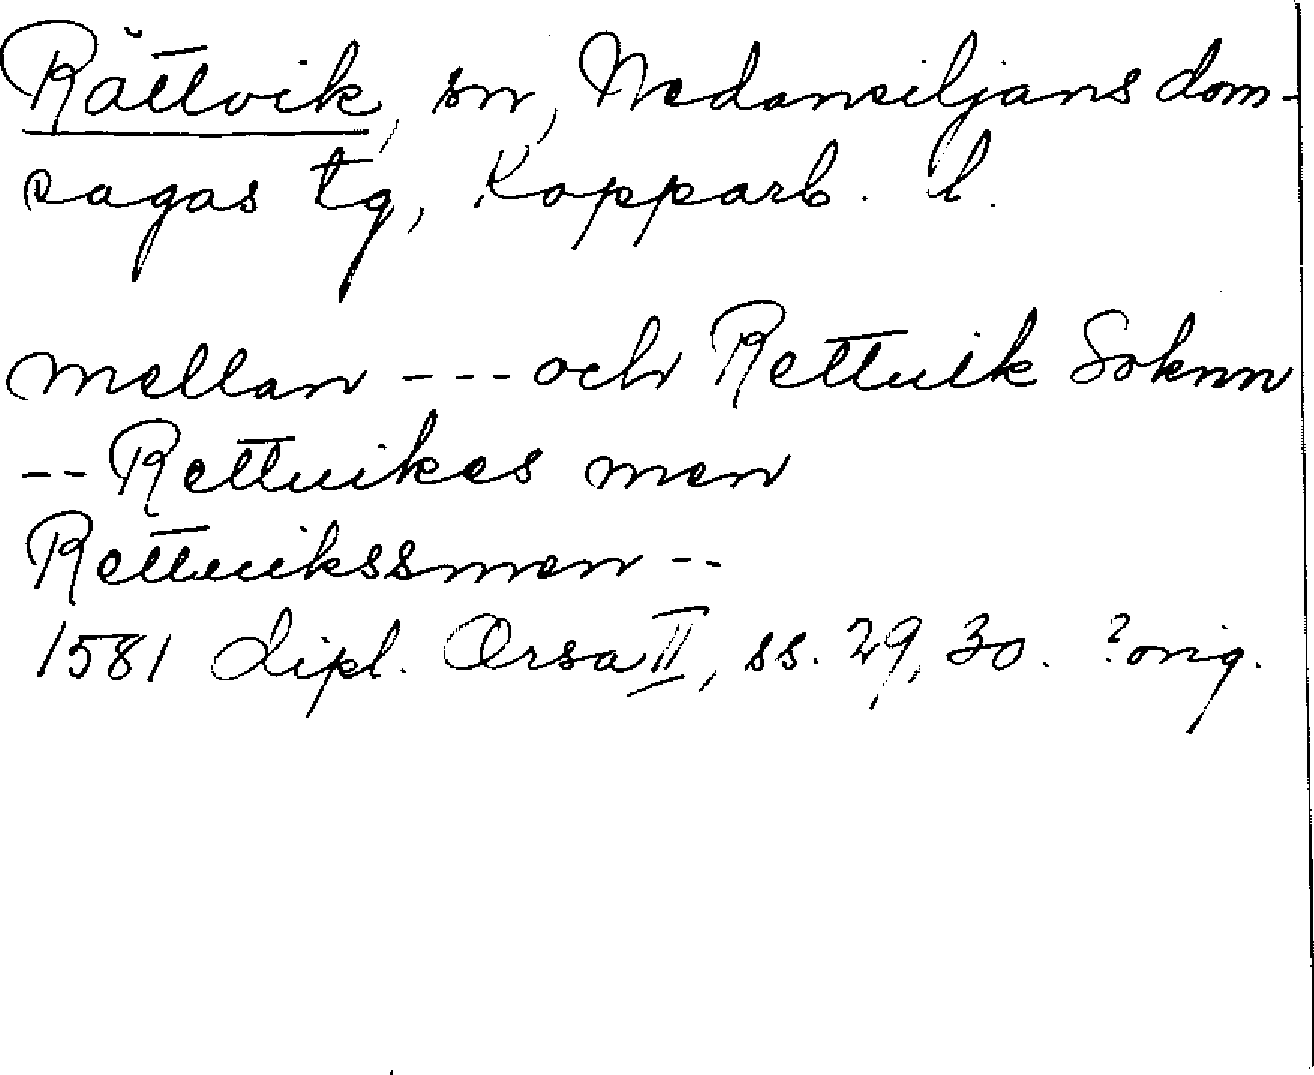 Rättvik, sn, Nedansiljans dom-
sagas tg, Kopparb. l.
mellan --- och Rettuik Soknn
-- Rettuikes men
Rettuikssmen --
1581 dipl. Orsa II, ss. 29, 30. ?orig.